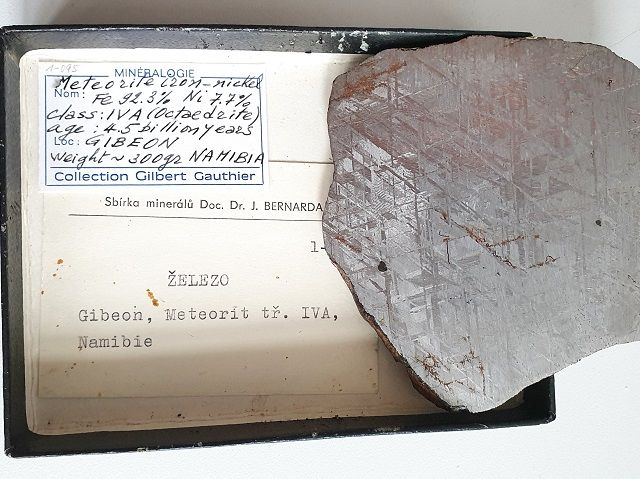 1-095
MINÉRALOGIE
Meteorite iron-nickel
Nom: Fe 92.3% Ni 7.7%
class: IVA (Octaedrite)
age: 4.5 billion years
Loc: GIBEON
Weight ~ 300gr NAMIBIA
Collection Gilbert Gauthier
Sbírka minerálů Doc. Dr. J. BERNARDA
1-
ŽELEZO
Gibeon, Meteorit tř. IVA,
Namibie